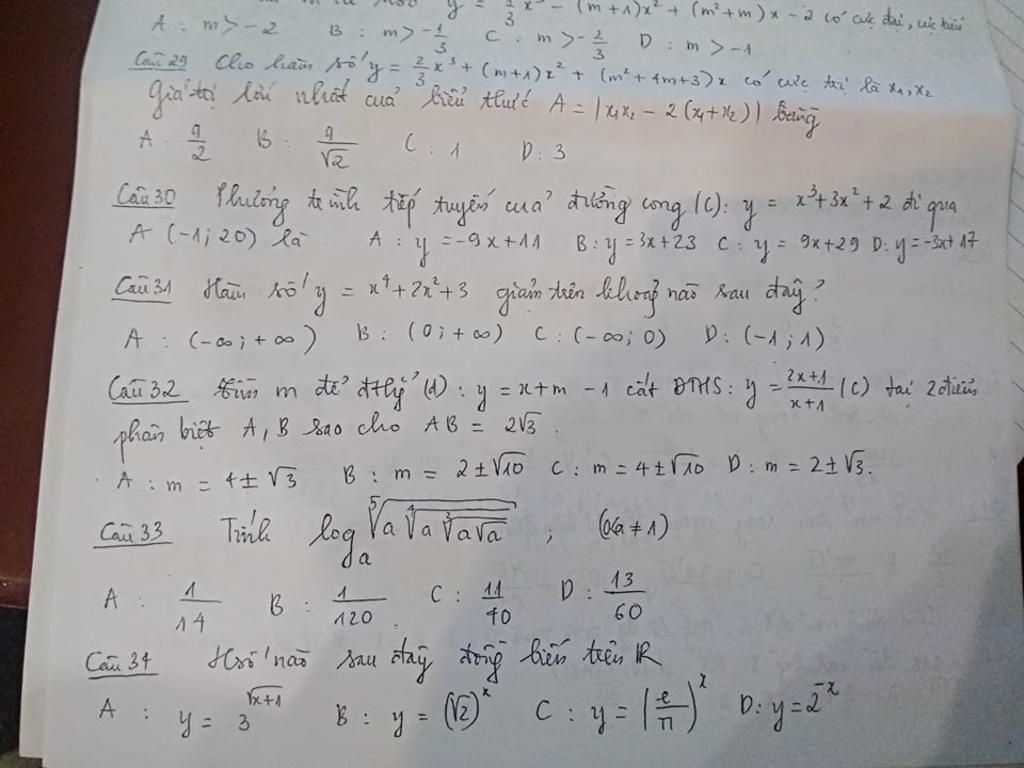 y = 1/3 x³ - (m+1)x² + (m²+m)x - 2 có cực đại, cực tiểu
A : m > -2 B : m > -1/3 C : m > -2/3 D : m > -1
Câu 29 Cho hàm số y = 2/3 x³ + (m+1)x² + (m²+4m+3)x có cực trị là x₁, x₂
Giá trị lớn nhất của biểu thức A = |x₁x₂ - 2(x₁+x₂)| bằng
A : 9/2 B : 9/√2 C : 1 D : 3
Câu 30 Phương trình tiếp tuyến của đường cong (C): y = x³+3x²+2 đi qua
A (-1; 20) là A : y = -9x+11 B : y = 3x+23 C : y = 9x+29 D: y = -3x+17
Câu 31 Hàm số y = x⁴+2x²+3 giảm trên khoảng nào sau đây?
A : (-∞; +∞) B : (0; +∞) C : (-∞; 0) D : (-1; 1)
Câu 32 tìm m để đthg (1) : y = x+m-1 cắt ĐTHS : y = (2x+1)/(x+1) (C) tại 2 điểm
phân biệt A, B sao cho AB = 2√3.
A : m = 4±√3 B : m = 2±√10 C : m = 4±√10 D : m = 2±√3.
Câu 33 Tính logₐ ⁵√(a ⁴√(a ³√(a√a))) ; (0<a≠1)
A : 1/14 B : 1/120 . C : 11/40 D : 13/60
Câu 34 Hsố nào sau đây đồng biến trên R
A : y = 3^√(x+1) B : y = (√2)^x C : y = (e/π)^x D: y = 2^-x